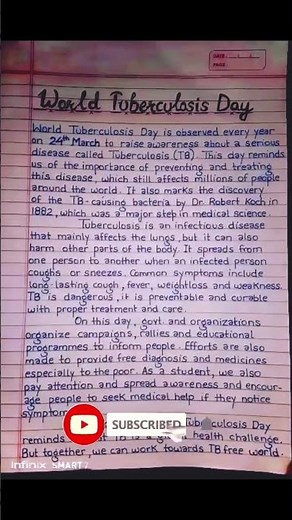 DATE:
PAGE:
World Tuberculosis Day
World Tuberculosis Day is observed every year
on 24th March to raise awareness about a serious
disease called Tuberculosis (TB). This day reminds
us of the importance of preventing and treating
this disease, which still affects millions of people
around the world. It also marks the discovery
of the TB-causing bacteria by Dr. Robert Koch in
1882, which was a major step in medical science.
Tuberculosis is an infectious disease
that mainly affects the lungs, but it can also
harm other parts of the body. It spreads from
one person to another when an infected person
coughs or sneezes. Common symptoms include
long-lasting cough, fever, weightloss and weakness.
TB is dangerous, it is preventable and curable
with proper treatment and care.
On this day, govt. and organizations
organize campaigns, rallies and educational
programmes to inform people. Efforts are also
made to provide free diagnosis and medicines
especially to the poor. As a student, we also
pay attention and spread awareness and encour-
age people to seek medical help if they notice
symptom
SUBSCRIBED
Tuberculosis Day
reminds TB is a health challenge.
But together, we can work towards TB free world.
Infinix SMART 7